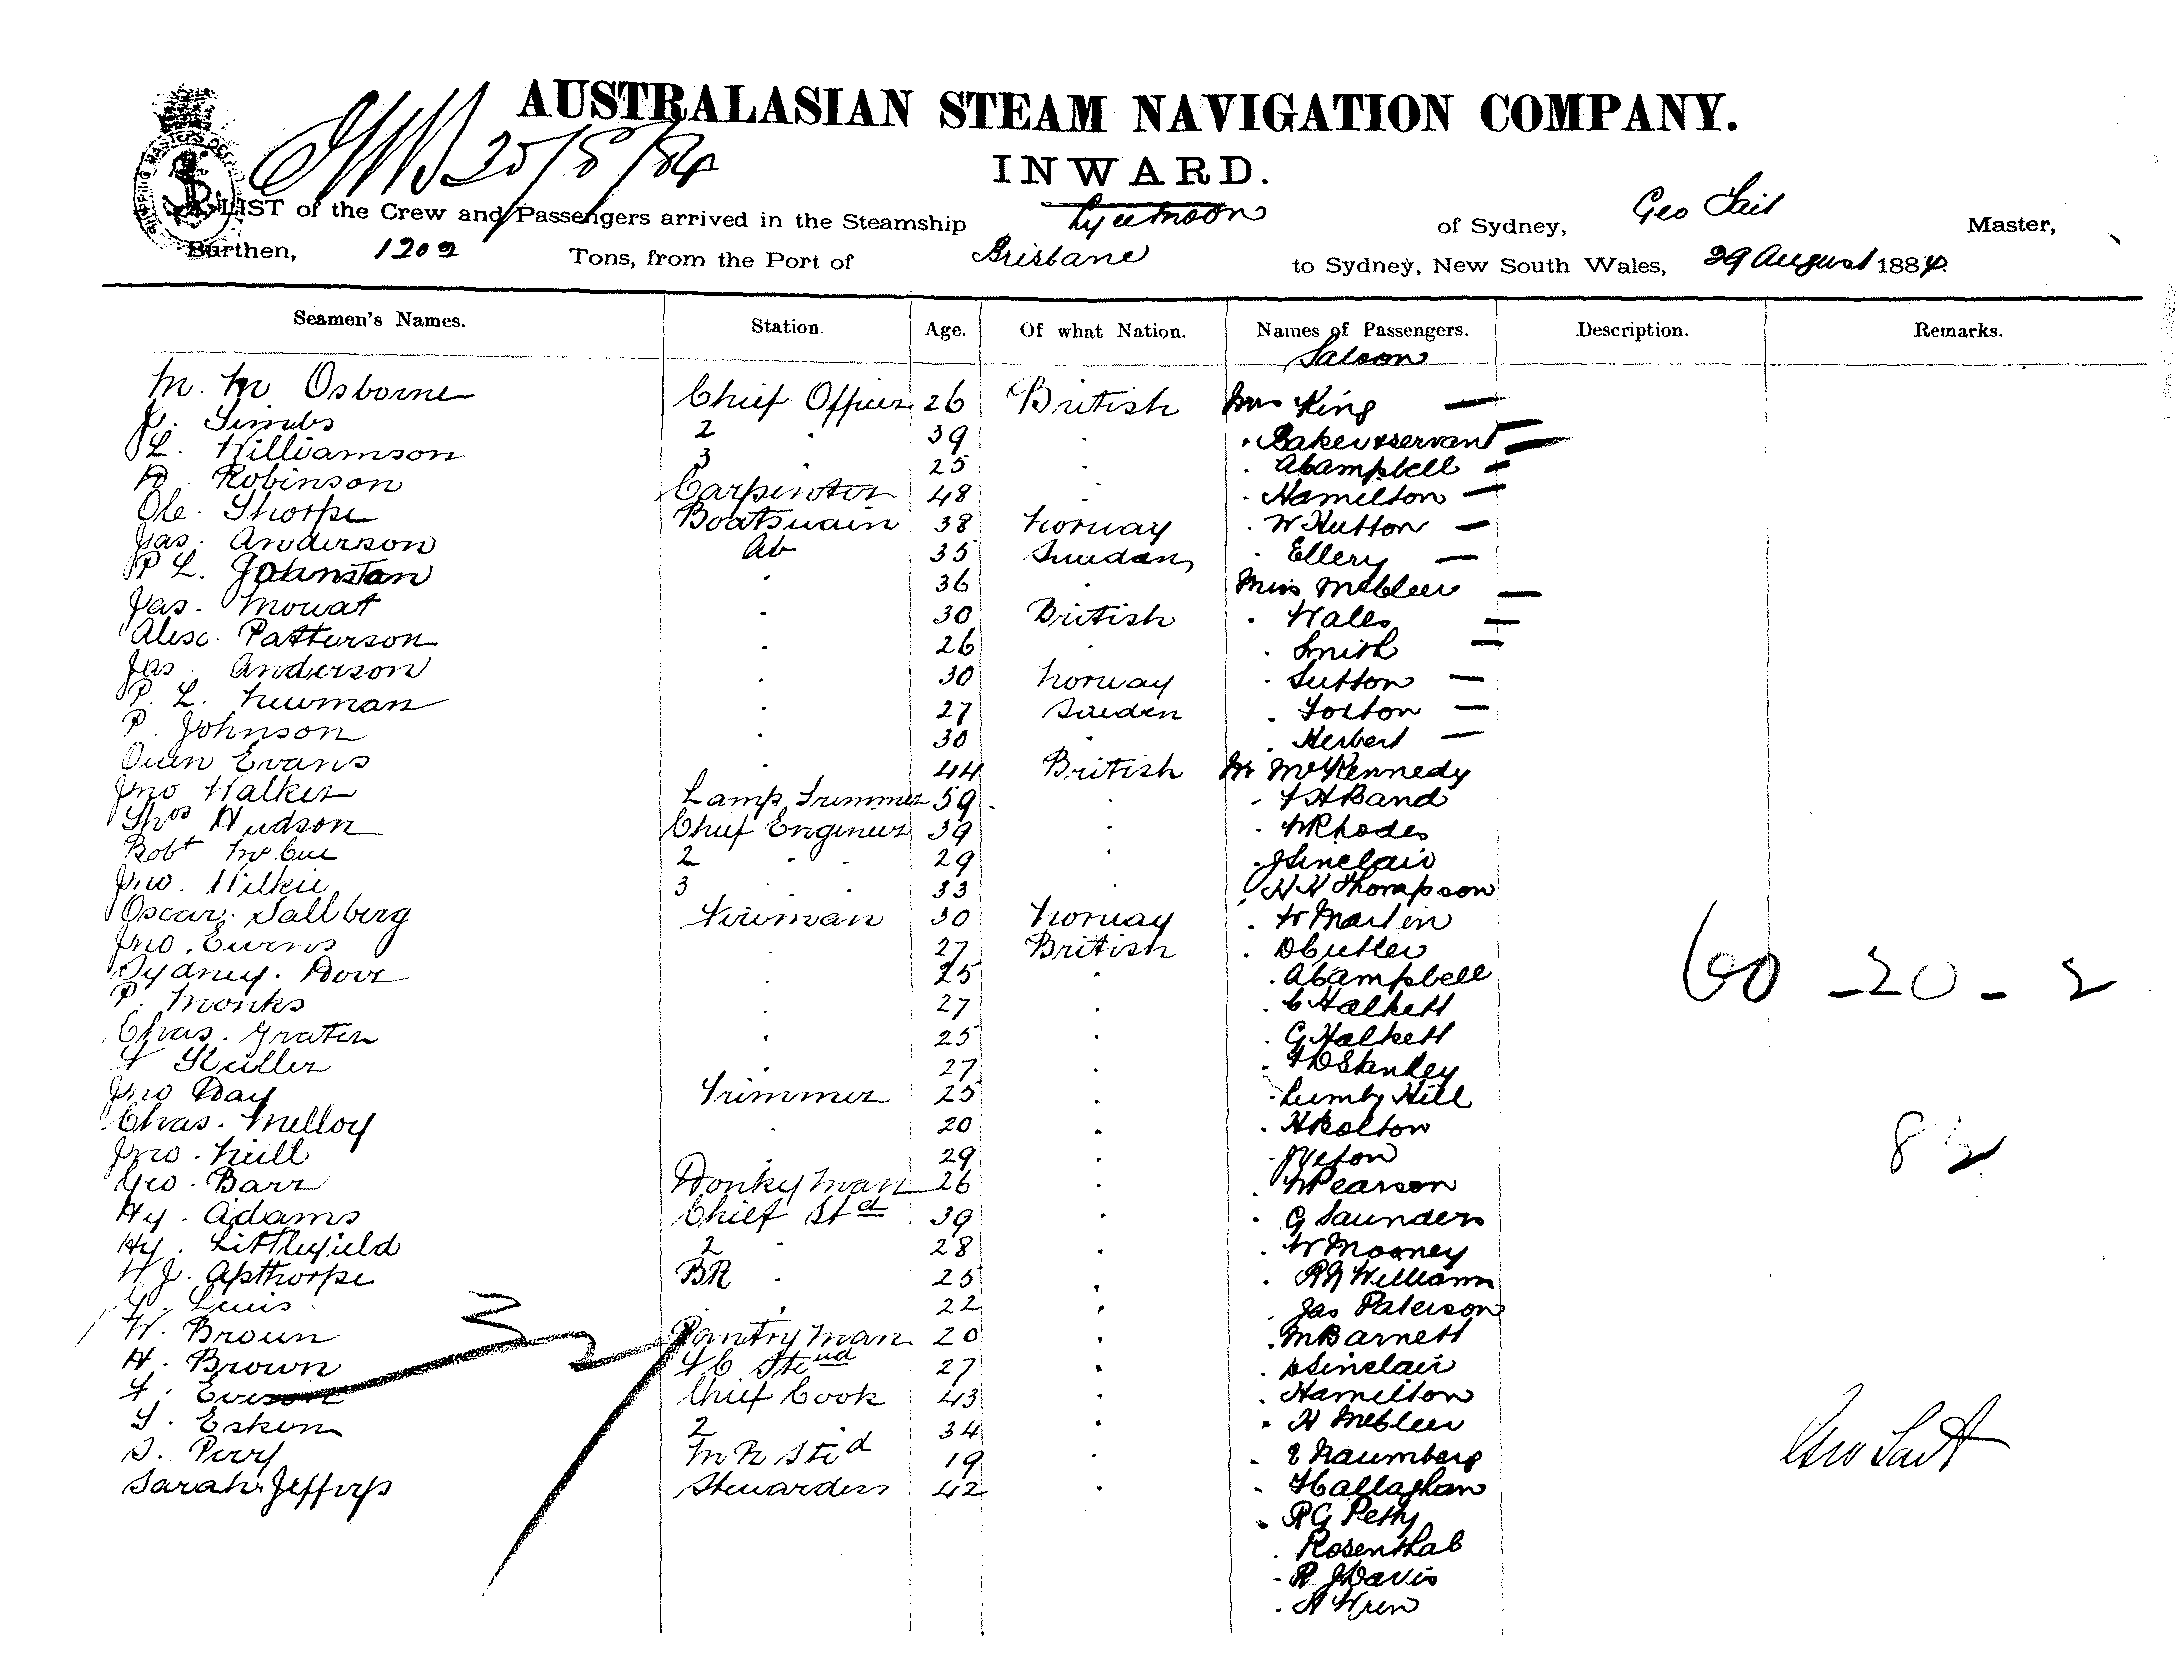 AUSTRALASIAN STEAM NAVIGATION COMPANY.
INWARD.
LIST of the Crew and Passengers arrived in the Steamship Lyeemoon of Sydney, Geo Tait Master,
Burthen, 1202 Tons, from the Port of Brisbane to Sydney, New South Wales, 29 August 1884
Seamen's Names. Station. Age. Of what Nation. Names of Passengers. Description. Remarks.
Saloon
M. M Osborne Chief Officer 26 British Mrs King
2 39
L. Williamson 3 25 A Campbell
Robinson Carpenter 48 Hamilton
Ole. Thorpe Boatswain 38 Norway W Hutton
Jas. Anderson Ab 35 Sweden Ellery
P L. Johnstan 36 Miss McCleer
Jas. Mowat 30 British Wales
Alex. Patterson 26 Smith
Jas. Anderson 30 Norway Sutton
P. L. Newman 27 Sweden
P. Johnson 30 Herbert
Owen Evans 44 British Mr McKennedy
Jno Walker Lamp Trimmer 59 Band
Thos Hudson Chief Engineer 39 Rhodes
Robt McCue 2 29 J Sinclair
Jno. Wilkie 3 33 Thompson
Oscar. Sallberg Fireman 30 Norway W Martin
Jno. 27 British D Cutler
Sydney. Dove 25 A Campbell
P. Monks 27 C Halkett
Chas. Grater 25 G Halkett
27 Stanley
Jno Day Trimmer 25 Lumby Hill
Chas. Melloy 20 H Bolton
Jno. Neill 29
Geo. Barr Donkyman 26 W Pearson
Hy. Adams Chief Std 39 G Saunders
Hy. Littlefield 2 28 W Mooney
W J. Apthorpe BR 25 Williams
Lewis 22 Jas Paterson
W. Brown Pantryman 20 M Barnett
H. Brown 27 Sinclair
Chief Cook 43 Hamilton
2 34 H McCleer
S. Perry 19 E Naumberg
Sarah Jefferys Stewardess 42 Callaghan
R G Petty
Rosenthal
R J Davis
A Wren
60 - 20 - 2
82
Geo Tait